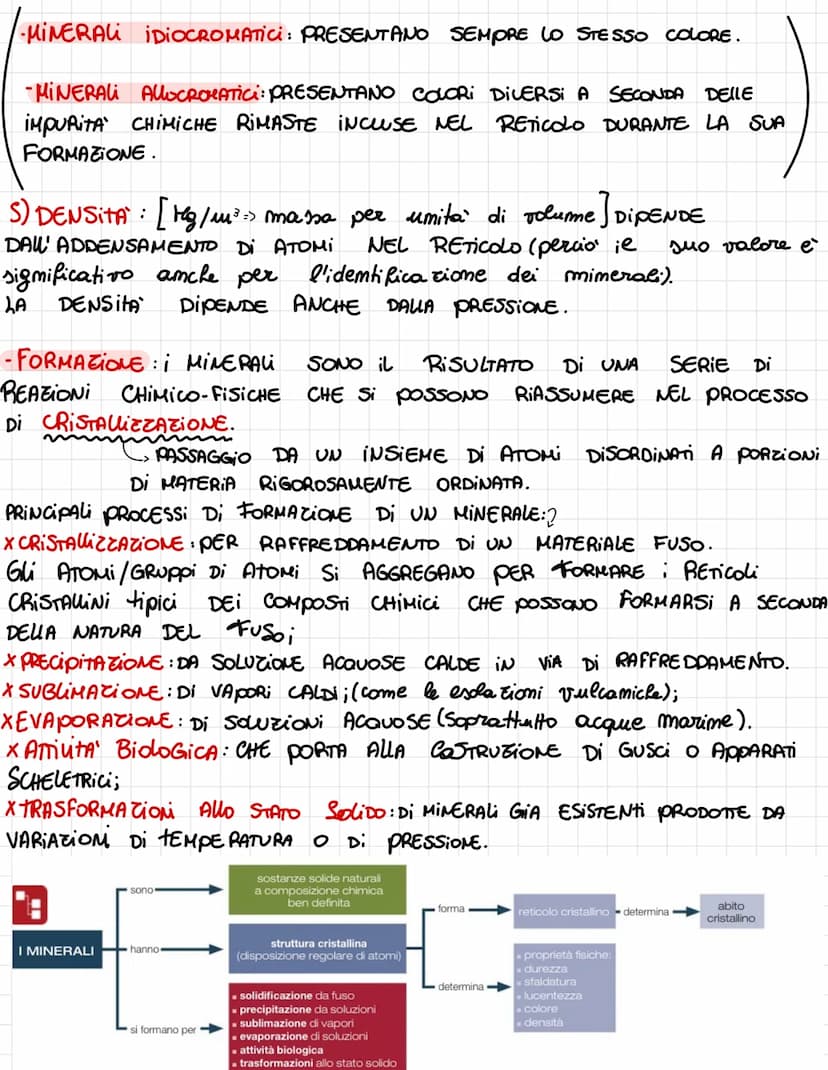 -MINERALI IDIOCROMATICI: PRESENTANO SEMPRE LO STESSO COLORE.
-MINERALI ALLOCROMATICI: PRESENTANO COLORI DIVERSI A SECONDA DELLE
IMPURITA' CHIMICHE RIMASTE INCLUSE NEL RETICOLO DURANTE LA SUA
FORMAZIONE.
5) DENSITA': [Kg/m³=> massa per unita' di volume] DIPENDE
DALL'ADDENSAMENTO DI ATOMI NEL RETICOLO (percio' il suo valore e'
significativo anche per l'identificazione dei minerali).
LA DENSITA' DIPENDE ANCHE DALLA PRESSIONE.
-FORMAZIONE: i MINERALI SONO IL RISULTATO DI UNA SERIE DI
REAZIONI CHIMICO-FISICHE CHE SI POSSONO RIASSUMERE NEL PROCESSO
DI CRISTALLIZZAZIONE.
↳ PASSAGGIO DA UN INSIEME DI ATOMI DISORDINATI A PORZIONI
DI MATERIA RIGOROSAMENTE ORDINATA.
PRINCIPALI PROCESSI DI FORMAZIONE DI UN MINERALE:
x CRISTALLIZZAZIONE: PER RAFFREDDAMENTO DI UN MATERIALE FUSO.
Gli ATOMI/GRUPPI DI ATOMI SI AGGREGANO PER FORMARE i RETICOLI
CRISTALLINI tipici DEI COMPOSTI CHIMICI CHE POSSONO FORMARSI A SECONDA
DELLA NATURA DEL FUSO;
x PRECIPITAZIONE: DA SOLUZIONE ACQUOSE CALDE IN VIA DI RAFFREDDAMENTO.
x SUBLIMAZIONE: DI VAPORI CALDI; (come le esalazioni vulcaniche);
x EVAPORAZIONE: DI SOLUZIONI ACQUOSE (soprattutto acque marine).
x ATTIVITA' BIOLOGICA: CHE PORTA ALLA COSTRUZIONE DI GUSCI O APPARATI
SCHELETRICI;
x TRASFORMAZIONI ALLO STATO SOLIDO: DI MINERALI GIA ESISTENTI PRODOTTE DA
VARIAZIONI DI TEMPERATURA O DI PRESSIONE.
I MINERALI
sono
sostanze solide naturali
a composizione chimica
ben definita
hanno
struttura cristallina
(disposizione regolare di atomi)
forma
reticolo cristallino
determina
abito
cristallino
determina
proprietà fisiche:
durezza
sfaldatura
lucentezza
colore
densità
si formano per
solidificazione da fuso
precipitazione da soluzioni
sublimazione di vapori
evaporazione di soluzioni
attività biologica
trasformazioni allo stato solido